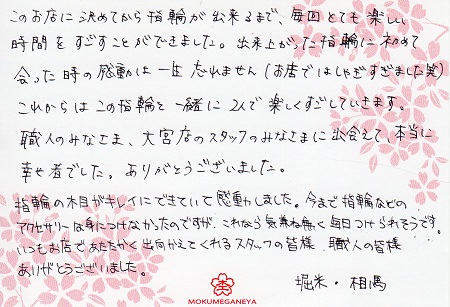 このお店に決めてから指輪が出来るまで、毎回とても楽しい
時間をすごすことができました。出来上がった指輪に初めて
会った時の感動は一生忘れません(お店ではしゃぎすぎました笑)
これからはこの指輪と一緒に2人で楽しくすごしていきます。
職人のみなさま、大宮店のスタッフのみなさまに出会えて、本当に
幸せ者でした。ありがとうございました。
指輪の木目がキレイにできていて感動しました。今まで指輪などの
アクセサリーは身につけなかったのですが、これなら気兼ね無く毎日つけられそうです。
いつもお店であたたかく出向かえてくれるスタッフの皆様、職人の皆様
ありがとうございました。
堀米・相馬
MOKUMEGANEYA